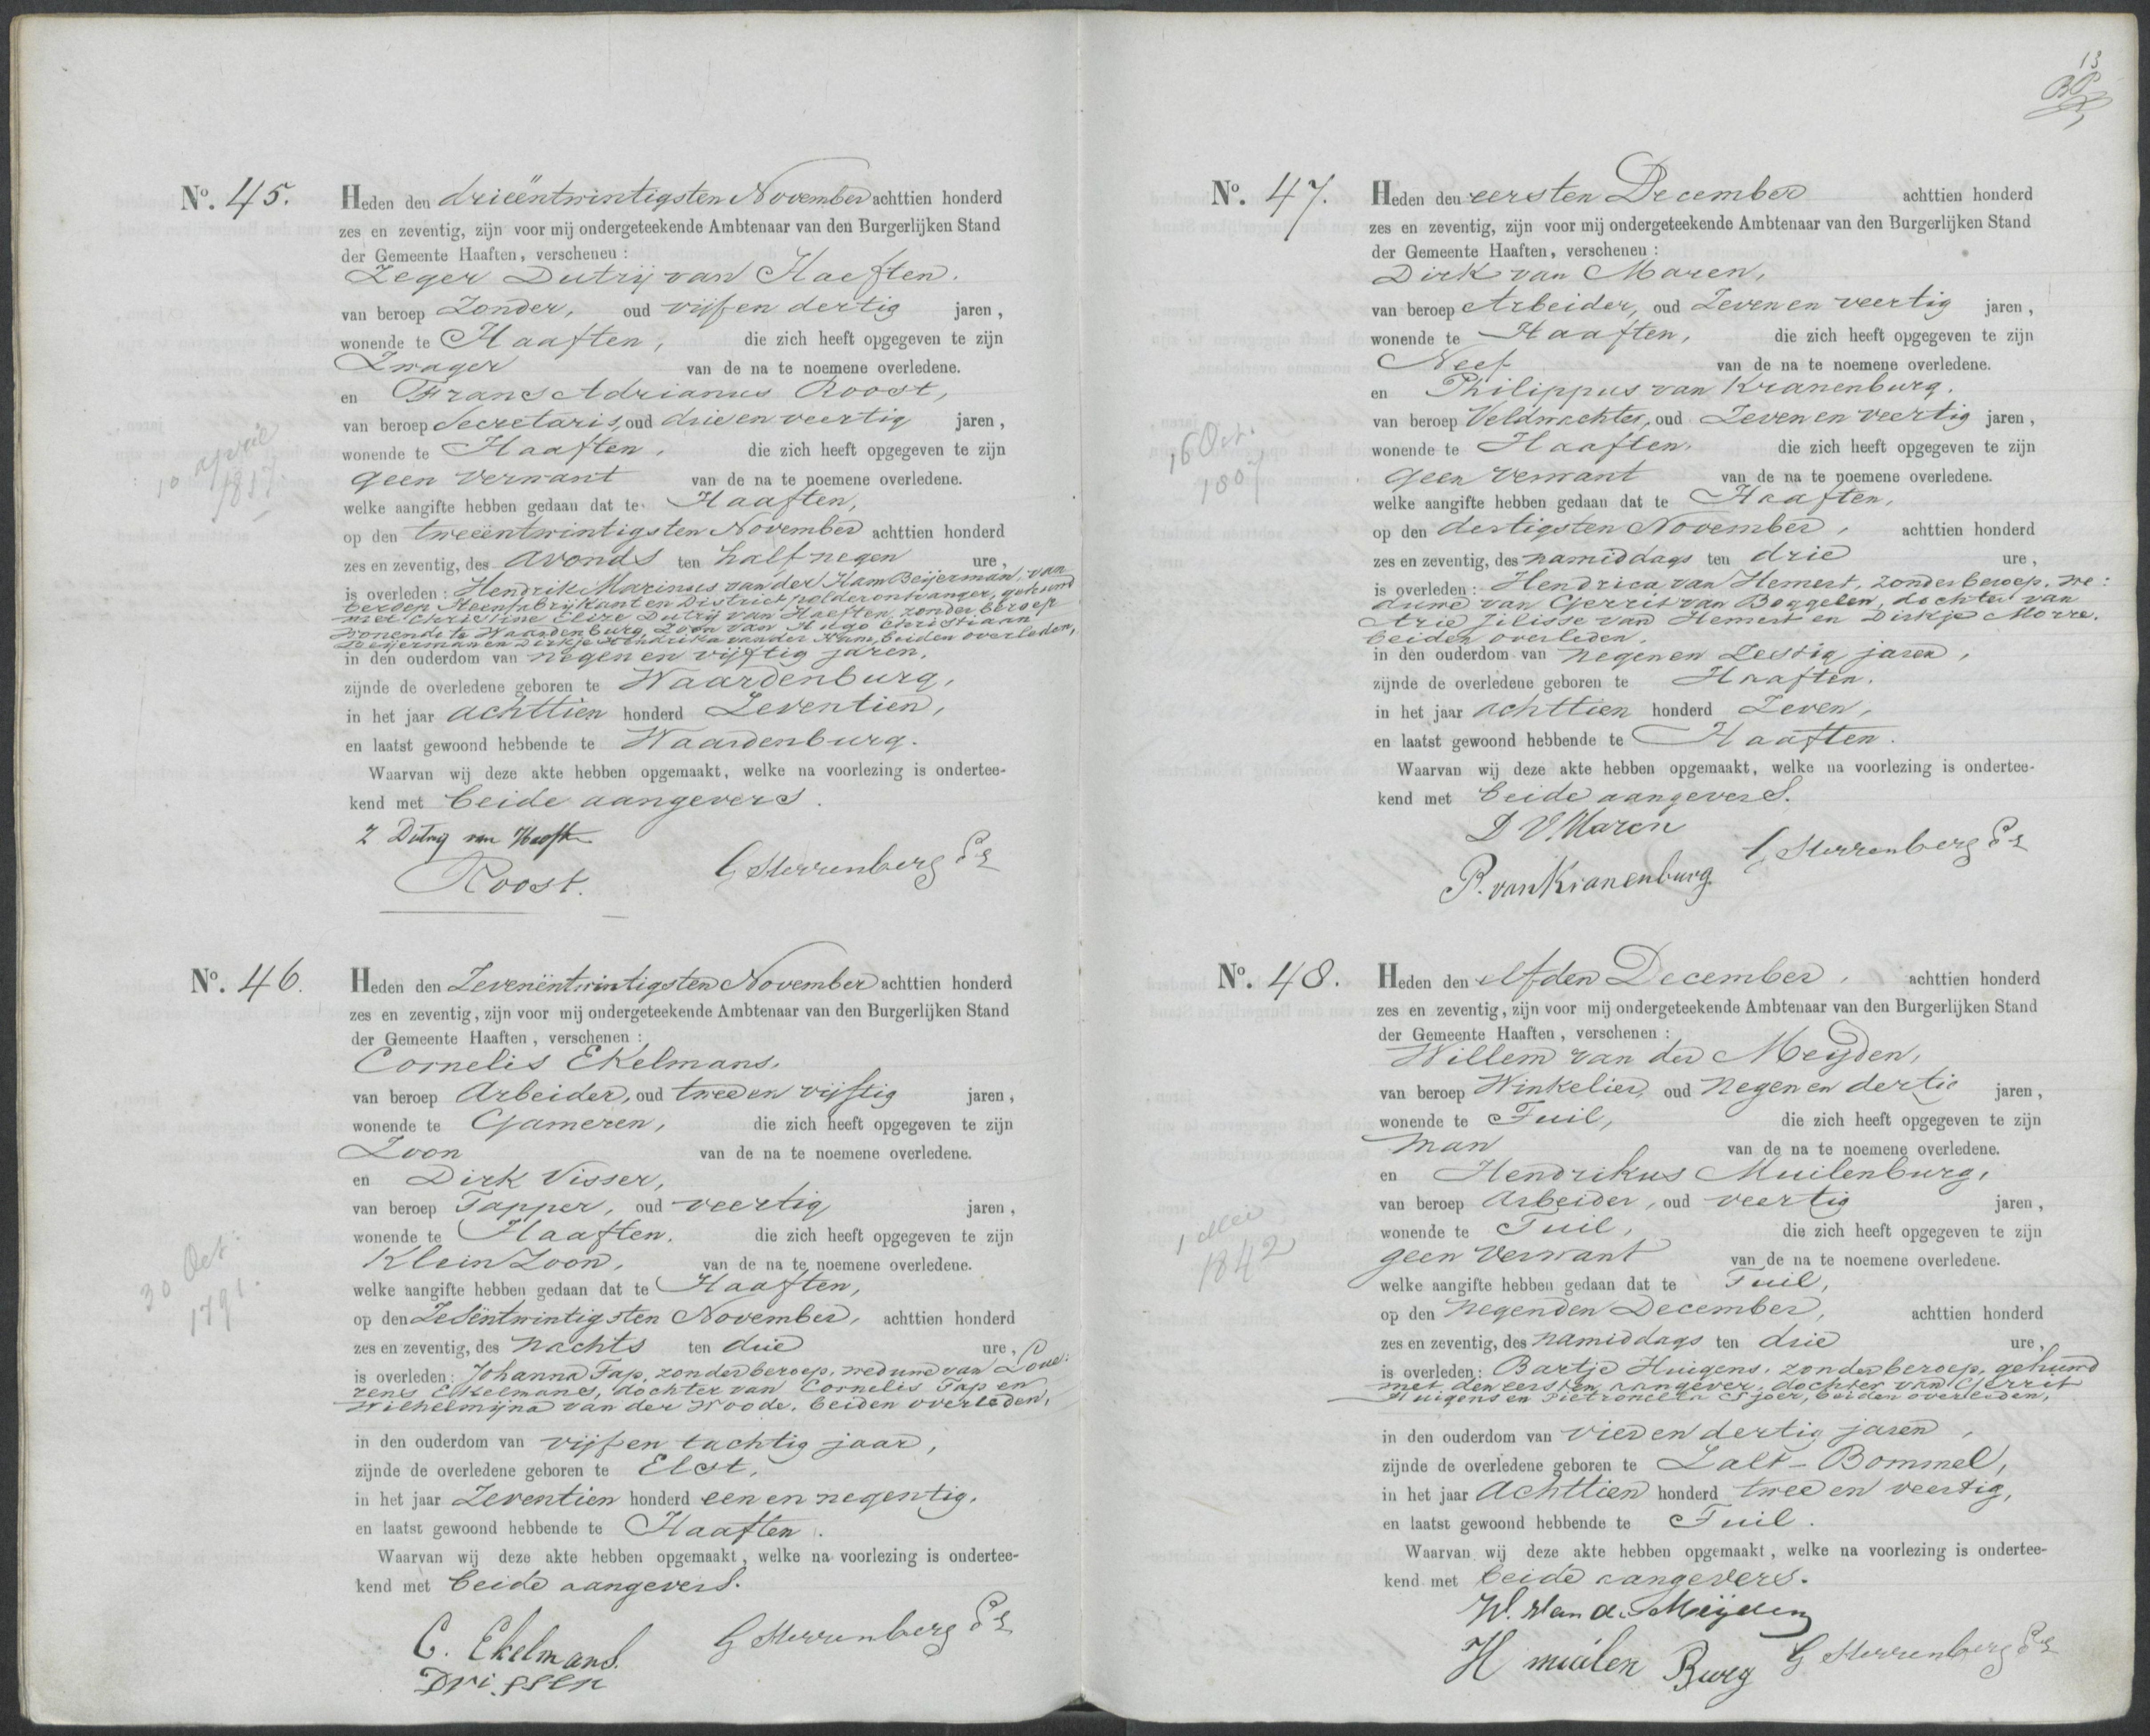 No. 45.
Heden den drieëntwintigsten November achttien honderd
zes en zeventig, zijn voor mij ondergeteekende Ambtenaar van den Burgerlijken Stand
der Gemeente Haaften, verschenen :
Zeger Dutrij van Haeften.
van beroep Zonder, oud vijf en dertig jaren,
wonende te Haaften, die zich heeft opgegeven te zijn
Zwager van de na te noemene overledene.
en Frans Adrianus Roost,
van beroep Secretaris, oud drie en veertig jaren,
wonende te Haaften, die zich heeft opgegeven te zijn
geen verwant van de na te noemene overledene.
10 april
1817.
welke aangifte hebben gedaan dat te Haaften,
op den tweeëntwintigsten November achttien honderd
zes en zeventig, des avonds ten half negen ure,
is overleden : Hendrik Marinus van der Ham Beijerman, van
beroep Steenfabrijkant en District polderontvanger, gehuwd
met Christine Elize Dutrij van Haeften, zonder beroep
wonende te Waardenburg, Zoon van Hugo Christiaan
Beijerman en Dirkje Hendrika van der Ham, beiden overleden,
in den ouderdom van negen en vijftig jaren,
zijnde de overledene geboren te Waardenburg,
in het jaar achttien honderd Zeventien,
en laatst gewoond hebbende te Waardenburg.
Waarvan wij deze akte hebben opgemaakt, welke na voorlezing is ondertee-
kend met beide aangevers.
Z Dutrij van Haeften
Roost.
No. 46.
Heden den Zevenëntwintigsten November achttien honderd
zes en zeventig, zijn voor mij ondergeteekende Ambtenaar van den Burgerlijken Stand
der Gemeente Haaften, verschenen :
Cornelis Ekelmans,
van beroep Arbeider, oud twee en vijftig jaren,
wonende te Gameren, die zich heeft opgegeven te zijn
Zoon van de na te noemene overledene.
en Dirk Visser,
van beroep Tapper, oud veertig jaren,
wonende te Haaften, die zich heeft opgegeven te zijn
Klein Zoon, van de na te noemene overledene.
30 Oct.
1791.
welke aangifte hebben gedaan dat te Haaften,
op den Zesëntwintigsten November, achttien honderd
zes en zeventig, des nachts ten drie ure,
is overleden : Johanna Tap, zonder beroep, weduwe van Lou-
rens Ekelmans, dochter van Cornelis Tap en
Wilhelmijna van der Woode, beiden overleden,
in den ouderdom van vijf en tachtig jaar,
zijnde de overledene geboren te Elst,
in het jaar Zeventien honderd een en negentig,
en laatst gewoond hebbende te Haaften.
Waarvan wij deze akte hebben opgemaakt, welke na voorlezing is ondertee-
kend met beide aangevers.
C. Ekelmans.
13
No. 47.
Heden den eersten December achttien honderd
zes en zeventig, zijn voor mij ondergeteekende Ambtenaar van den Burgerlijken Stand
der Gemeente Haaften, verschenen :
Dirk van Maren,
van beroep Arbeider, oud Zeven en veertig jaren,
wonende te Haaften, die zich heeft opgegeven te zijn
Neef van de na te noemene overledene.
en Philippus van Kranenburg,
van beroep Veldwachter, oud Zeven en veertig jaren,
wonende te Haaften, die zich heeft opgegeven te zijn
geen verwant van de na te noemene overledene.
16 Oct.
1807
welke aangifte hebben gedaan dat te Haaften,
op den dertigsten November, achttien honderd
zes en zeventig, des namiddags ten drie ure,
is overleden : Hendrica van Hemert, zonder beroep, we:
duwe van Gerrit van Boggelen, dochter van
Arie Jilisse van Hemert en Dirkje Morre.
beiden overleden.
in den ouderdom van negen en Zestig jaren,
zijnde de overledene geboren te Haaften,
in het jaar achttien honderd Zeven,
en laatst gewoond hebbende te Haaften.
Waarvan wij deze akte hebben opgemaakt, welke na voorlezing is ondertee-
kend met beide aangevers.
D V. Maren
P. van Kranenburg
No. 48.
Heden den elfden December, achttien honderd
zes en zeventig, zijn voor mij ondergeteekende Ambtenaar van den Burgerlijken Stand
der Gemeente Haaften, verschenen :
Willem van der Meijden,
van beroep Winkelier, oud negen en dertig jaren,
wonende te Tuil, die zich heeft opgegeven te zijn
man van de na te noemene overledene.
en Hendrikus Muilenburg,
van beroep Arbeider, oud veertig jaren,
wonende te Tuil, die zich heeft opgegeven te zijn
geen verwant van de na te noemene overledene.
1 Mei
1842
welke aangifte hebben gedaan dat te Tuil,
op den negenden December, achttien honderd
zes en zeventig, des namiddags ten drie ure,
is overleden : Bartje Huigens, zonder beroep, gehuwd
met den eersten aangever, dochter van Gerrit
Huigens en Pietronella, beiden overleden,
in den ouderdom van vier en dertig jaren,
zijnde de overledene geboren te Zalt-Bommel,
in het jaar Achttien honderd twee en veertig,
en laatst gewoond hebbende te Tuil.
Waarvan wij deze akte hebben opgemaakt, welke na voorlezing is ondertee-
kend met beide aangevers.
W. van d. Meijden
H muilen Burg